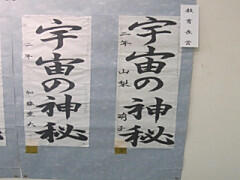 教育長賞
宇宙の神秘
二年 山梨
宇宙の神秘
二年 加藤